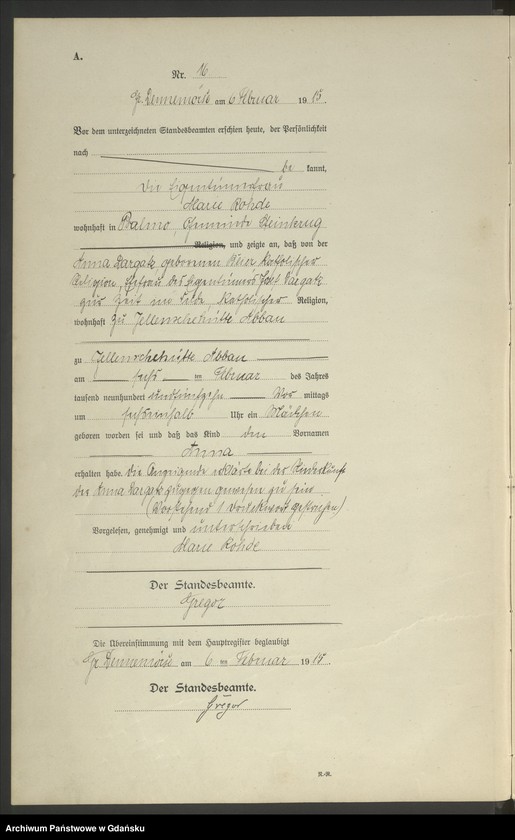 A.
Nr. 16
am 6 Februar 1915.
Vor dem unterzeichneten Standesbeamten erschien heute, der Persönlichkeit
nach
be kannt,
die Eigentümerfrau
Marie Rohde
wohnhaft in Balmo, Gemeinde Steinkrug
Religion, und zeigte an, daß von der
Anna Dargatz geborenen katholischer
Religion, Ehefrau des Eigentümers Dargatz
zur Zeit im Felde katholischer Religion,
wohnhaft zu Jellenschehütte Abbau
zu Jellenschehütte Abbau
am sechs ten Februar des Jahres
tausend neunhundert undfünfzehn Vor mittags
um Uhr ein Mädchen
geboren worden sei und daß das Kind den Vornamen
Anna
erhalten habe. Die Anzeigende erklärte bei der Niederkunft
der Anna Dargatz zugegen gewesen zu sein.
(Vorstehend 1 Druckwort gestrichen)
Vorgelesen, genehmigt und unterschrieben
Marie Rohde
Der Standesbeamte.
Gregor
Die Übereinstimmung mit dem Hauptregister beglaubigt
am 6 ten Februar 1915.
Der Standesbeamte.
Gregor
R.-R.
Archiwum Państwowe w Gdańsku